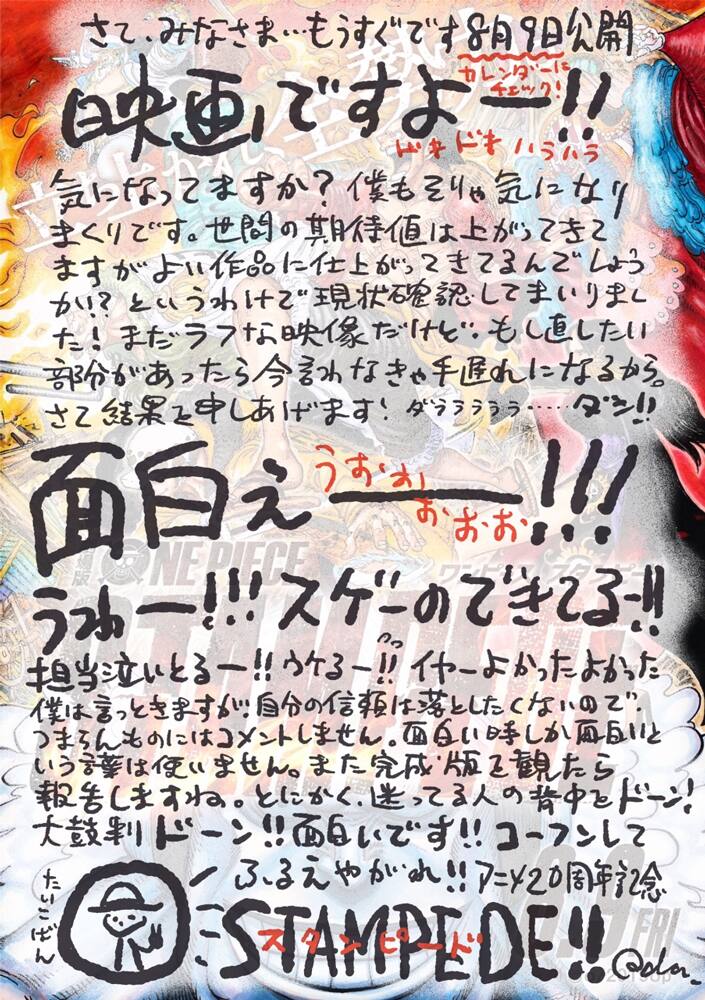 さて、みなさま…もうすぐです8月9日公開
カレンダーに
チェック!
映画ですよー!!
ドキドキ ハラハラ
気になってますか?僕もそりゃ気になり
まくりです。世間の期待値は上がってきて
ますがよい作品に仕上がってきてるんでしょう
か!?というわけで現状確認してまいりまし
た!まだラフな映像だけど、もし直したい
部分があったら今言わなきゃ手遅れになるから。
さて結果を申しあげます!ダララララ……ダン!!
面白えーー!!!
うおおおおお
ONE PIECE
STAMPEDE
うわー!!!スゲーのできてる!!
担当泣いとるー!!ウケるー!!イヤーよかったよかった
僕は言っときますが、自分の信頼は落としたくないので、
つまらんものにはコメントしません。面白い時しか面白いと
いう言葉は使いません。また完成版を観たら
報告しますね。とにかく、迷ってる人の背中をドーン!
太鼓判ドーン!!面白いです!!コーフンして
ふるえやがれ!!アニメ20周年記念
たいこばん
STAMPEDE!!
スタンピード
FRI